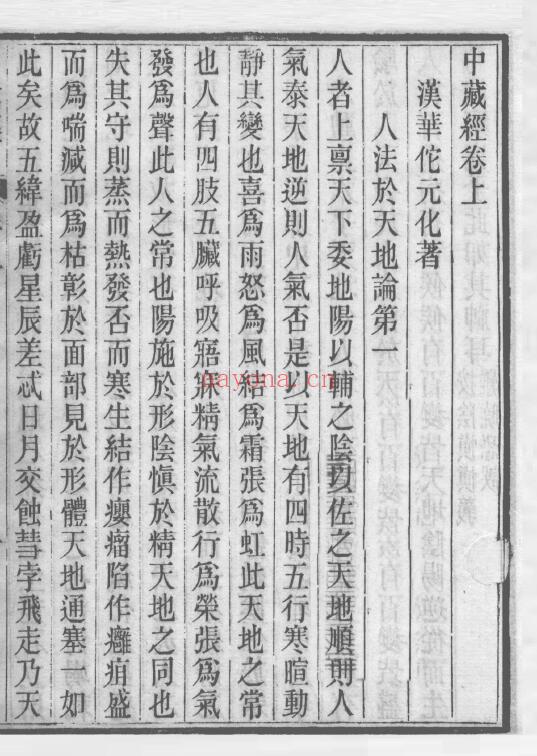 中藏經卷上
漢華佗元化著
人法於天地論第一
人者上禀天下委地陽以輔之陰以佐之天地順則人
氣泰天地逆則人氣否是以天地有四時五行寒暄動
靜其變也喜爲雨怒爲風結爲霜張爲虹此天地之常
也人有四肢五臟呼吸寤寐精氣流散行爲榮張爲氣
發爲聲此人之常也陽施於形陰愼於精天地之同也
失其守則蒸而熱發否而寒生結作癭瘤陷作癰疽盛
而爲喘減而爲枯彰於面部見於形體天地通塞一如
此矣故五緯盈虧星辰差忒日月交蝕彗孛飛走乃天
nayona.cn